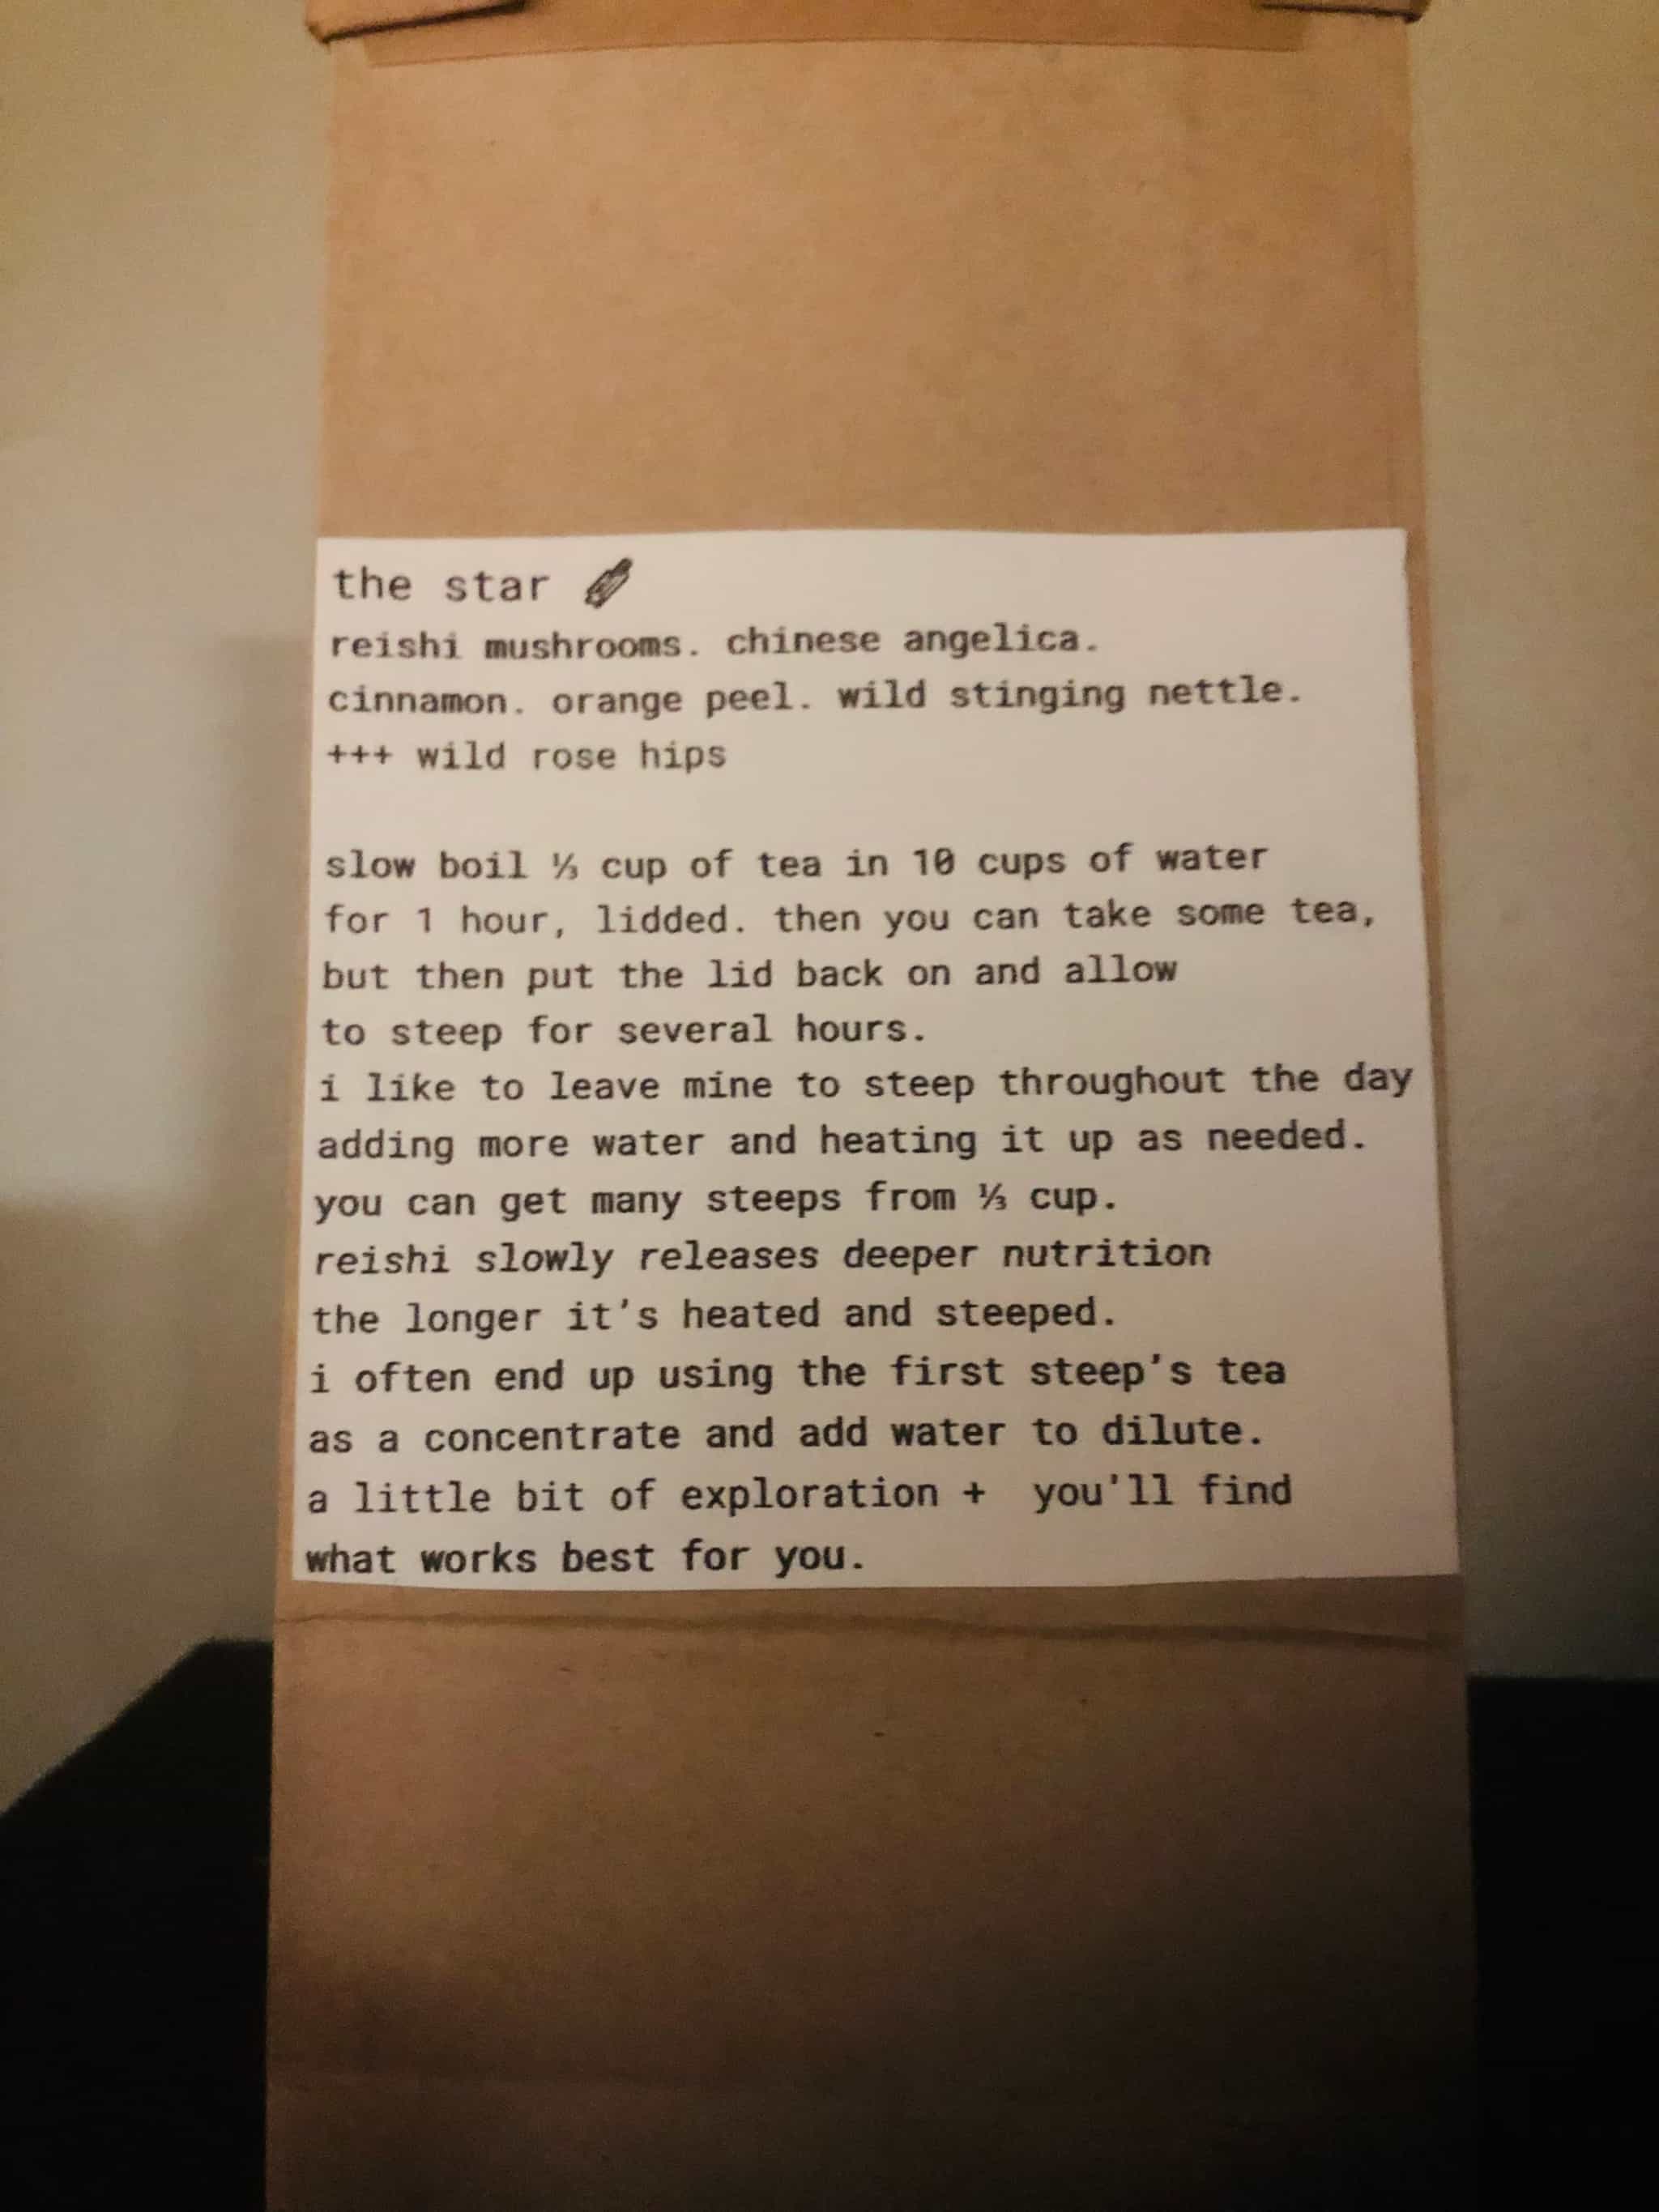 the star
reishi mushrooms. chinese angelica.
cinnamon. orange peel. wild stinging nettle.
+++ wild rose hips
slow boil ⅓ cup of tea in 10 cups of water
for 1 hour, lidded. then you can take some tea,
but then put the lid back on and allow
to steep for several hours.
i like to leave mine to steep throughout the day
adding more water and heating it up as needed.
you can get many steeps from ⅓ cup.
reishi slowly releases deeper nutrition
the longer it's heated and steeped.
i often end up using the first steep's tea
as a concentrate and add water to dilute.
a little bit of exploration + you'll find
what works best for you.